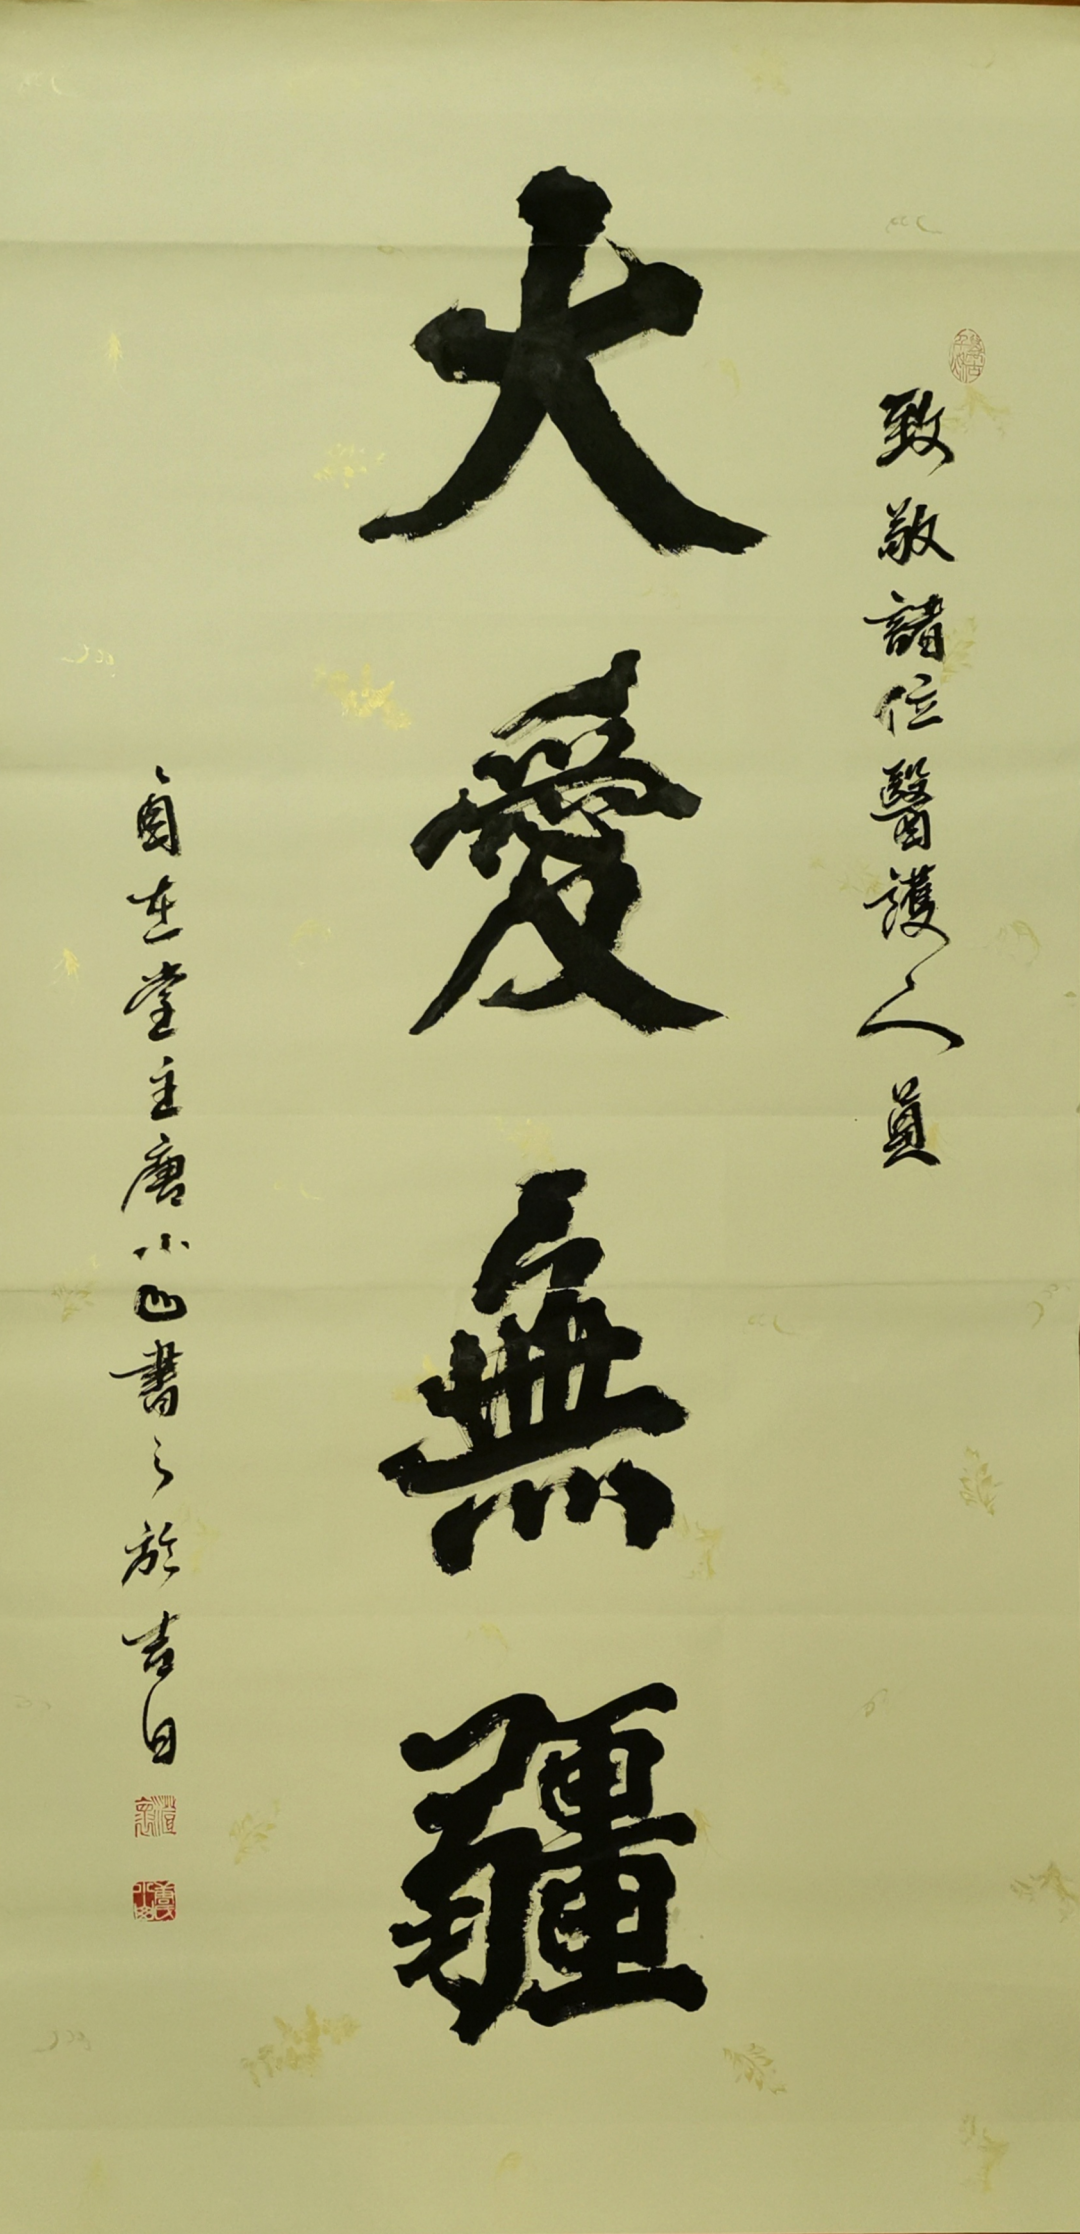 致敬諸位醫護人員
大愛無疆
自在堂主唐小山書之於吉日